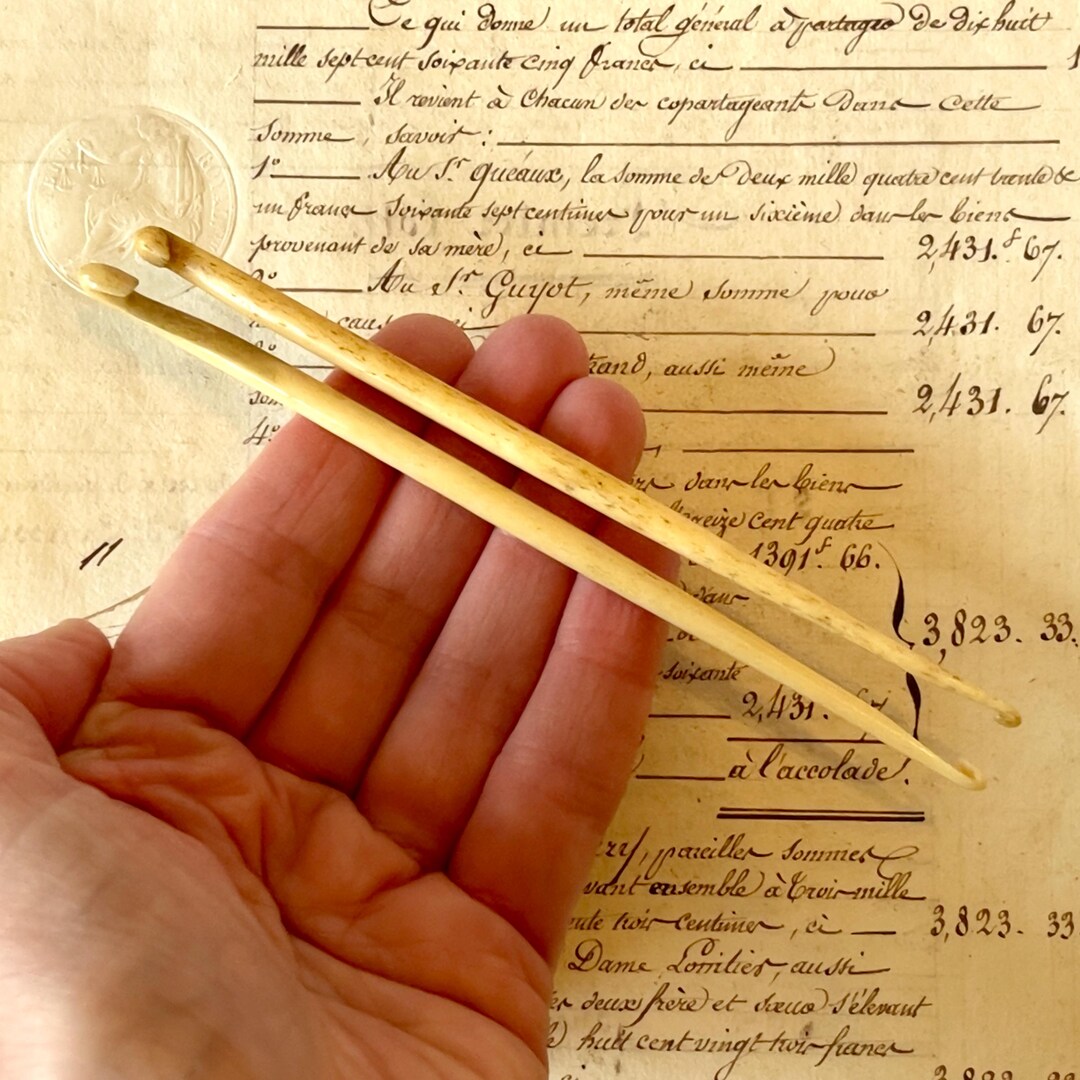 Ce qui donne un total général à partager de dix huit
mille sept cent soixante cinq francs, ci 1
Il revient à Chacun des copartageants Dans Cette
Somme, savoir :
1º Au Sr. Quéaux, la somme de Deux mille quatre cent trente &
un francs soixante sept centimes pour un sixième dans les biens
provenant de sa mère, ci 2,431.f 67.
2º Au Sr. Guyot, même somme pour
cause ci 2,431. 67.
aussi même
2,431. 67.
4º
dans les biens
treize cent quatre
1391f. 66.
dans
3,823. 33.
soixante
2,431. 67
à l'accolade.
pareilles sommes
ensemble à Trois mille
trois centimes, ci 3,823. 33
Dame aussi
deux frère et sœur s'élevant
huit cent vingt trois francs
3,823 33
11